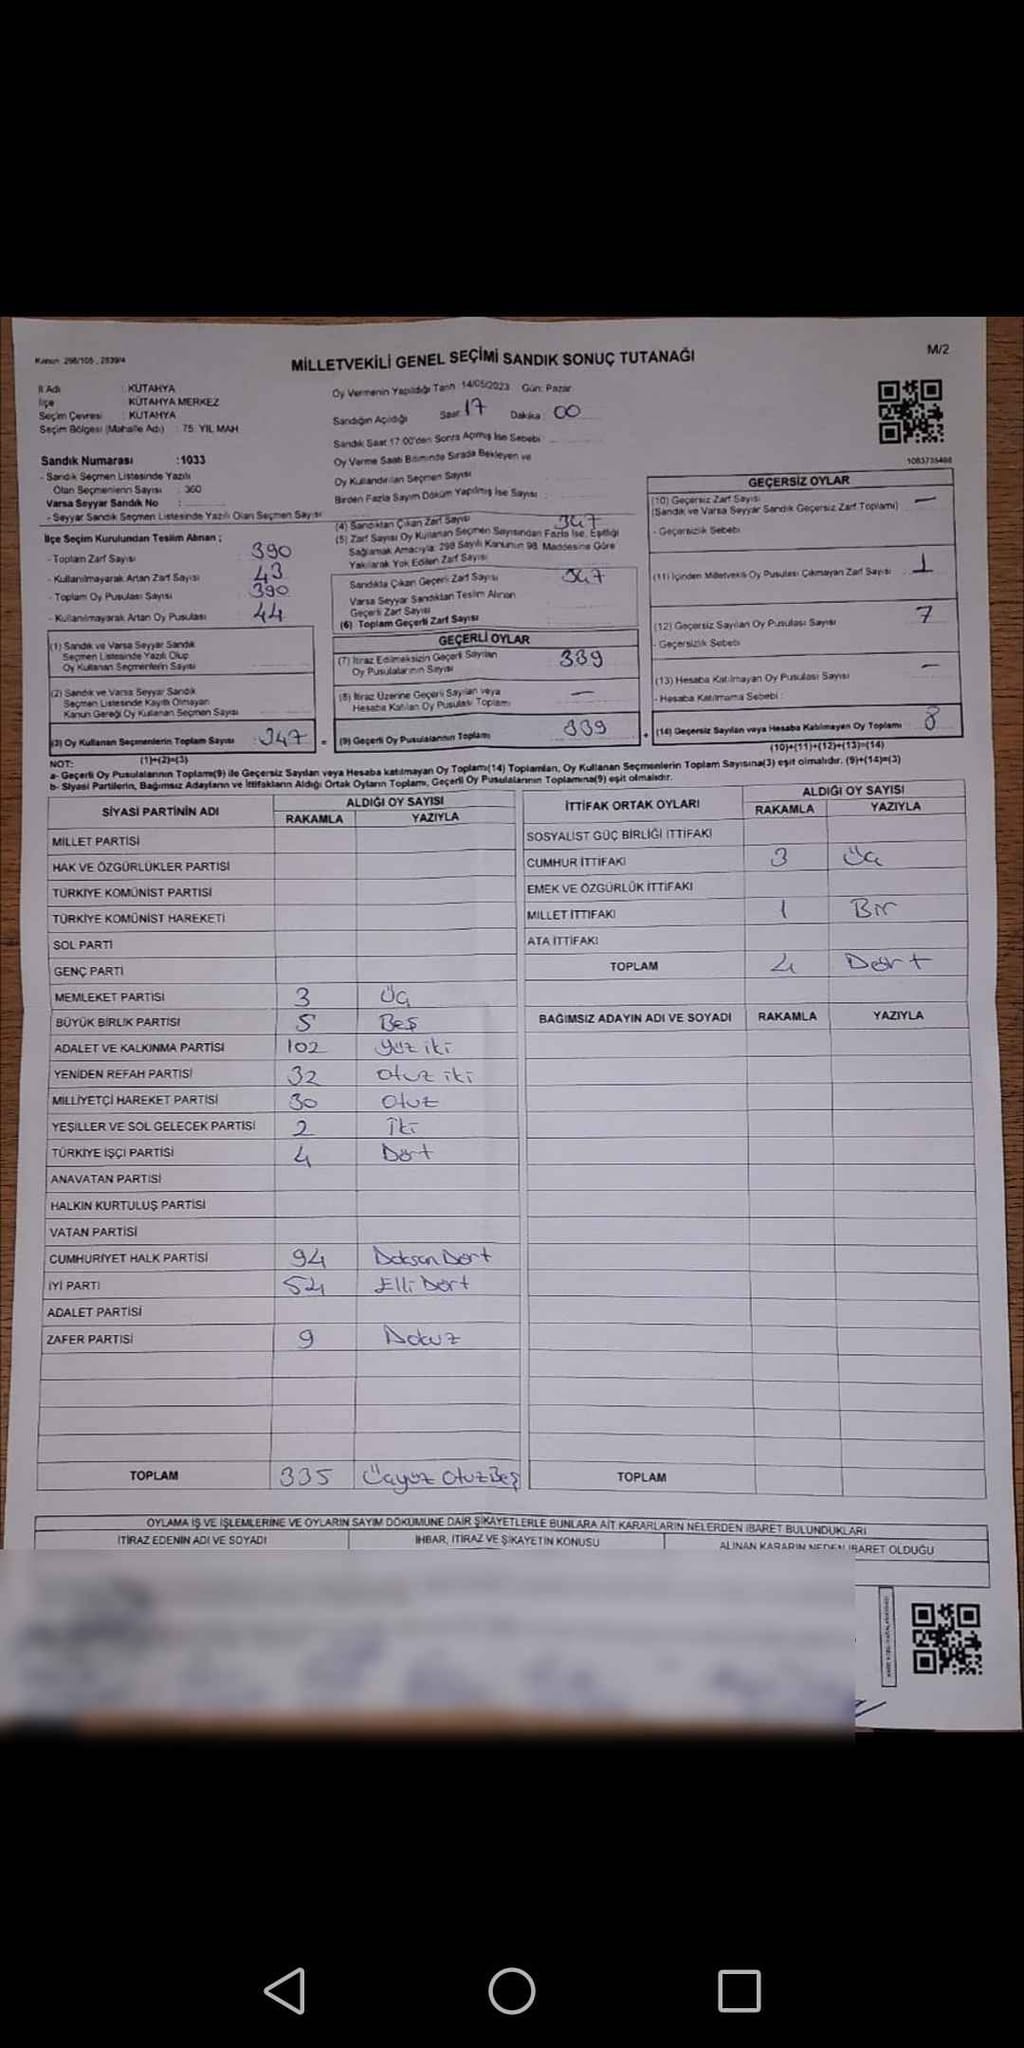 Kanun: 298/105, 2839/4
MİLLETVEKİLİ GENEL SEÇİMİ SANDIK SONUÇ TUTANAĞI
M/2
İl Adı : KÜTAHYA
İlçe : KÜTAHYA MERKEZ
Seçim Çevresi : KÜTAHYA
Seçim Bölgesi (Mahalle Adı) : 75. YIL MAH
Oy Vermenin Yapıldığı Tarih : 14/05/2023 Gün: Pazar
Sandığın Açıldığı Saat 17 Dakika : 00
Sandık Saat 17:00'den Sonra Açılmış İse Sebebi
Oy Verme Saati Bitiminde Sırada Bekleyen ve
Oy Kullandırılan Seçmen Sayısı
Birden Fazla Sayım Döküm Yapılmış İse Sayısı :
Sandık Numarası :1033
- Sandık Seçmen Listesinde Yazılı
Olan Seçmenlerin Sayısı : 360
Varsa Seyyar Sandık No :
- Seyyar Sandık Seçmen Listesinde Yazılı Olan Seçmen Sayısı
İlçe Seçim Kurulundan Teslim Alınan ;
- Toplam Zarf Sayısı 390
- Kullanılmayarak Artan Zarf Sayısı 43
- Toplam Oy Pusulası Sayısı 390
- Kullanılmayarak Artan Oy Pusulası 44
(1) Sandık ve Varsa Seyyar Sandık
Seçmen Listesinde Yazılı Olup
Oy Kullanan Seçmenlerin Sayısı
(2) Sandık ve Varsa Seyyar Sandık
Seçmen Listesinde Kayıtlı Olmayan
Kanun Gereği Oy Kullanan Seçmen Sayısı
(3) Oy Kullanan Seçmenlerin Toplam Sayısı : 347
(1)+(2)=(3)
(4) Sandıktan Çıkan Zarf Sayısı 347
(5) Zarf Sayısı Oy Kullanan Seçmen Sayısından Fazla İse, Eşitliği
Sağlamak Amacıyla, 298 Sayılı Kanunun 98. Maddesine Göre
Yakılarak Yok Edilen Zarf Sayısı
Sandıkta Çıkan Geçerli Zarf Sayısı 347
Varsa Seyyar Sandıktan Teslim Alınan
Geçerli Zarf Sayısı
(6) Toplam Geçerli Zarf Sayısı
GEÇERLİ OYLAR
(7) İtiraz Edilmeksizin Geçerli Sayılan
Oy Pusulalarının Sayısı 339
(8) İtiraz Üzerine Geçerli Sayılan veya
Hesaba Katılan Oy Pusulası Toplamı —
= (9) Geçerli Oy Pusulalarının Toplamı 339
1083735468
GEÇERSİZ OYLAR
(10) Geçersiz Zarf Sayısı —
(Sandık ve Varsa Seyyar Sandık Geçersiz Zarf Toplamı)
- Geçersizlik Sebebi
(11) İçinden Milletvekili Oy Pusulası Çıkmayan Zarf Sayısı 1
(12) Geçersiz Sayılan Oy Pusulası Sayısı 7
- Geçersizlik Sebebi
(13) Hesaba Katılmayan Oy Pusulası Sayısı —
- Hesaba Katılmama Sebebi :
+ (14) Geçersiz Sayılan veya Hesaba Katılmayan Oy Toplamı 8
(10)+(11)+(12)+(13)=(14)
NOT:
a- Geçerli Oy Pusulalarının Toplamı(9) ile Geçersiz Sayılan veya Hesaba katılmayan Oy Toplamı(14) Toplamları, Oy Kullanan Seçmenlerin Toplam Sayısına(3) eşit olmalıdır. (9)+(14)=(3)
b- Siyasi Partilerin, Bağımsız Adayların ve İttifakların Aldığı Ortak Oyların Toplamı, Geçerli Oy Pusulalarının Toplamına(9) eşit olmalıdır.
SİYASİ PARTİNİN ADI ALDIĞI OY SAYISI
RAKAMLA YAZIYLA
MİLLET PARTİSİ
HAK VE ÖZGÜRLÜKLER PARTİSİ
TÜRKİYE KOMÜNİST PARTİSİ
TÜRKİYE KOMÜNİST HAREKETİ
SOL PARTİ
GENÇ PARTİ
MEMLEKET PARTİSİ 3 Üç
BÜYÜK BİRLİK PARTİSİ 5 Beş
ADALET VE KALKINMA PARTİSİ 102 Yüz iki
YENİDEN REFAH PARTİSİ 32 Otuz iki
MİLLİYETÇİ HAREKET PARTİSİ 30 Otuz
YEŞİLLER VE SOL GELECEK PARTİSİ 2 İki
TÜRKİYE İŞÇİ PARTİSİ 4 Dört
ANAVATAN PARTİSİ
HALKIN KURTULUŞ PARTİSİ
VATAN PARTİSİ
CUMHURİYET HALK PARTİSİ 94 Doksan Dört
İYİ PARTİ 54 Elli Dört
ADALET PARTİSİ
ZAFER PARTİSİ 9 Dokuz
TOPLAM 335 Üçyüz OtuzBeş
İTTİFAK ORTAK OYLARI ALDIĞI OY SAYISI
RAKAMLA YAZIYLA
SOSYALİST GÜÇ BİRLİĞİ İTTİFAKI
CUMHUR İTTİFAKI 3 Üç
EMEK VE ÖZGÜRLÜK İTTİFAKI
MİLLET İTTİFAKI 1 Bir
ATA İTTİFAKI
TOPLAM 4 Dört
BAĞIMSIZ ADAYIN ADI VE SOYADI RAKAMLA YAZIYLA
TOPLAM
OYLAMA İŞ VE İŞLEMLERİNE VE OYLARIN SAYIM DÖKÜMÜNE DAİR ŞİKAYETLERLE BUNLARA AİT KARARLARIN NELERDEN İBARET BULUNDUKLARI
İTİRAZ EDENİN ADI VE SOYADI İHBAR, İTİRAZ VE ŞİKAYETİN KONUSU ALINAN KARARIN NEDEN İBARET OLDUĞU